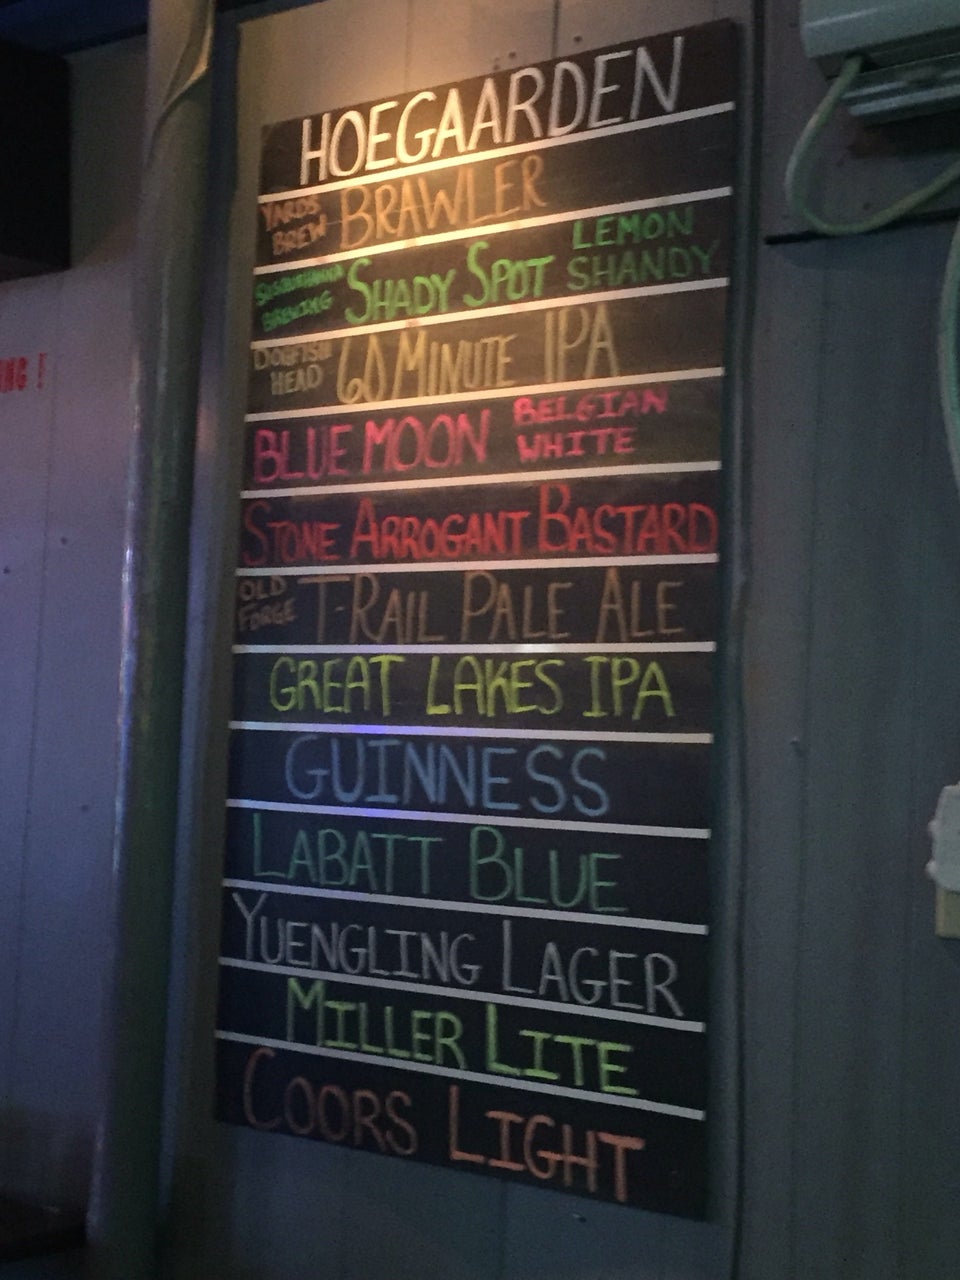 HOEGAARDEN
YARDS BREW BRAWLER
SUSQUEHANNA BREWING SHADY SPOT LEMON SHANDY
DOGFISH HEAD 60 MINUTE IPA
BLUE MOON BELGIAN WHITE
STONE ARROGANT BASTARD
OLD FORGE T-RAIL PALE ALE
GREAT LAKES IPA
GUINNESS
LABATT BLUE
YUENGLING LAGER
MILLER LITE
COORS LIGHT